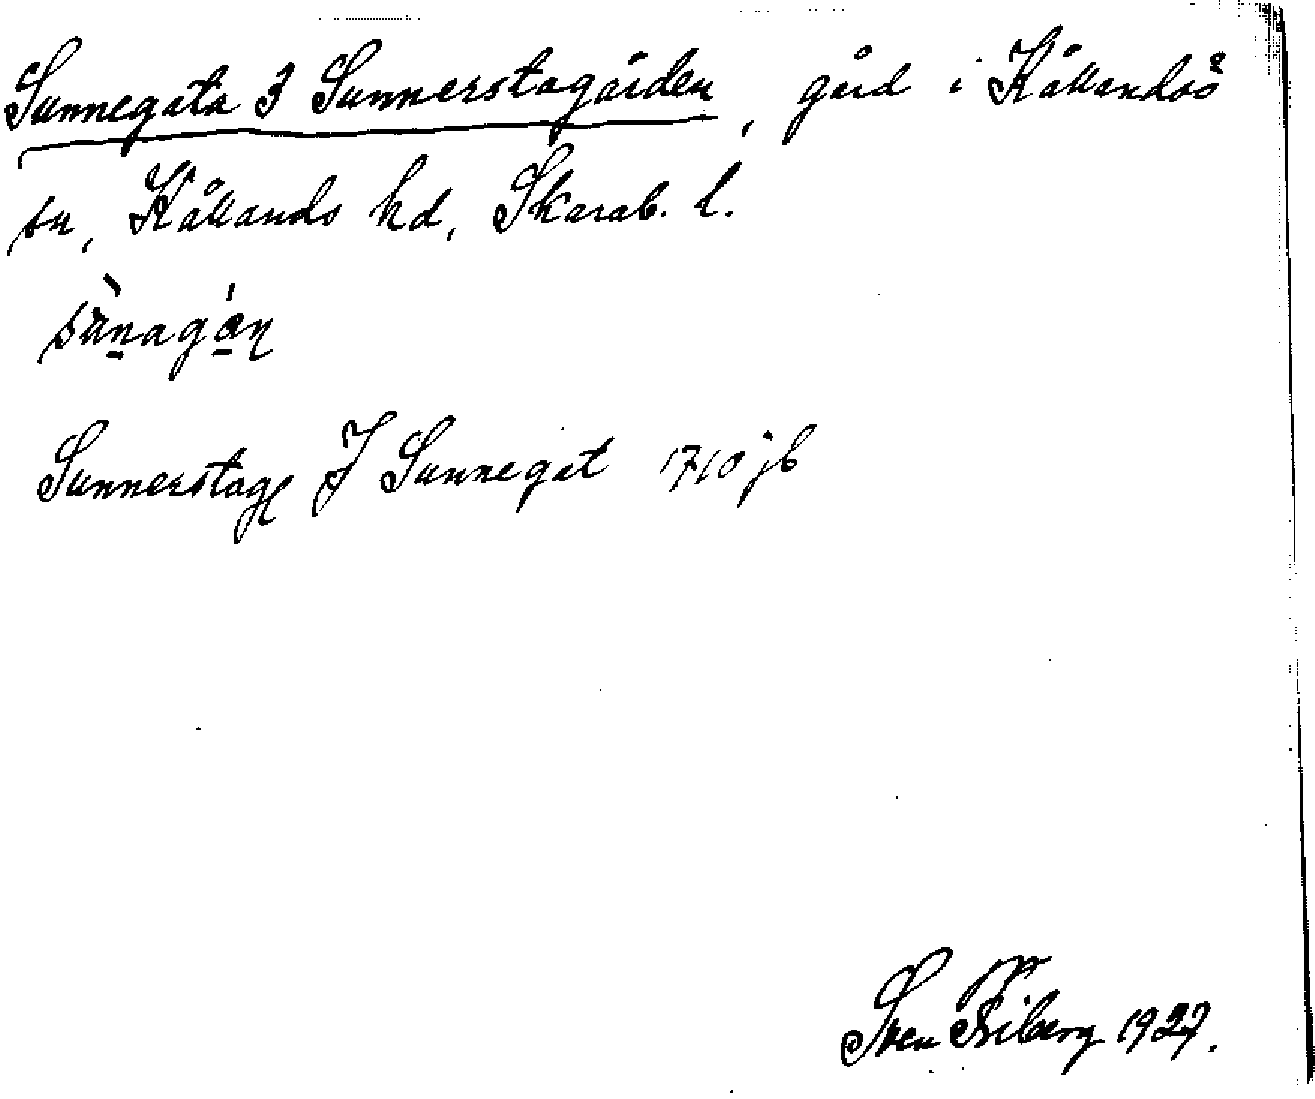 Sunnegata 3 Sunnerstagården, gård i Kållandsö
sn, Kållands hd, Skarab. l.
sùnagán
Sunnerstag J Sunnegat 1710 jb
Sven Friberg 1929.